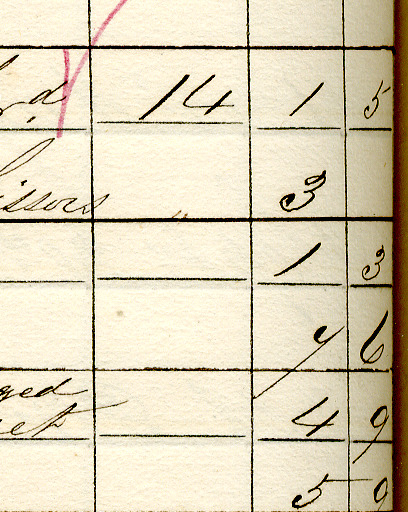 14 1 5
issors " 3
1 3
7 6
ged
4 9
5 9